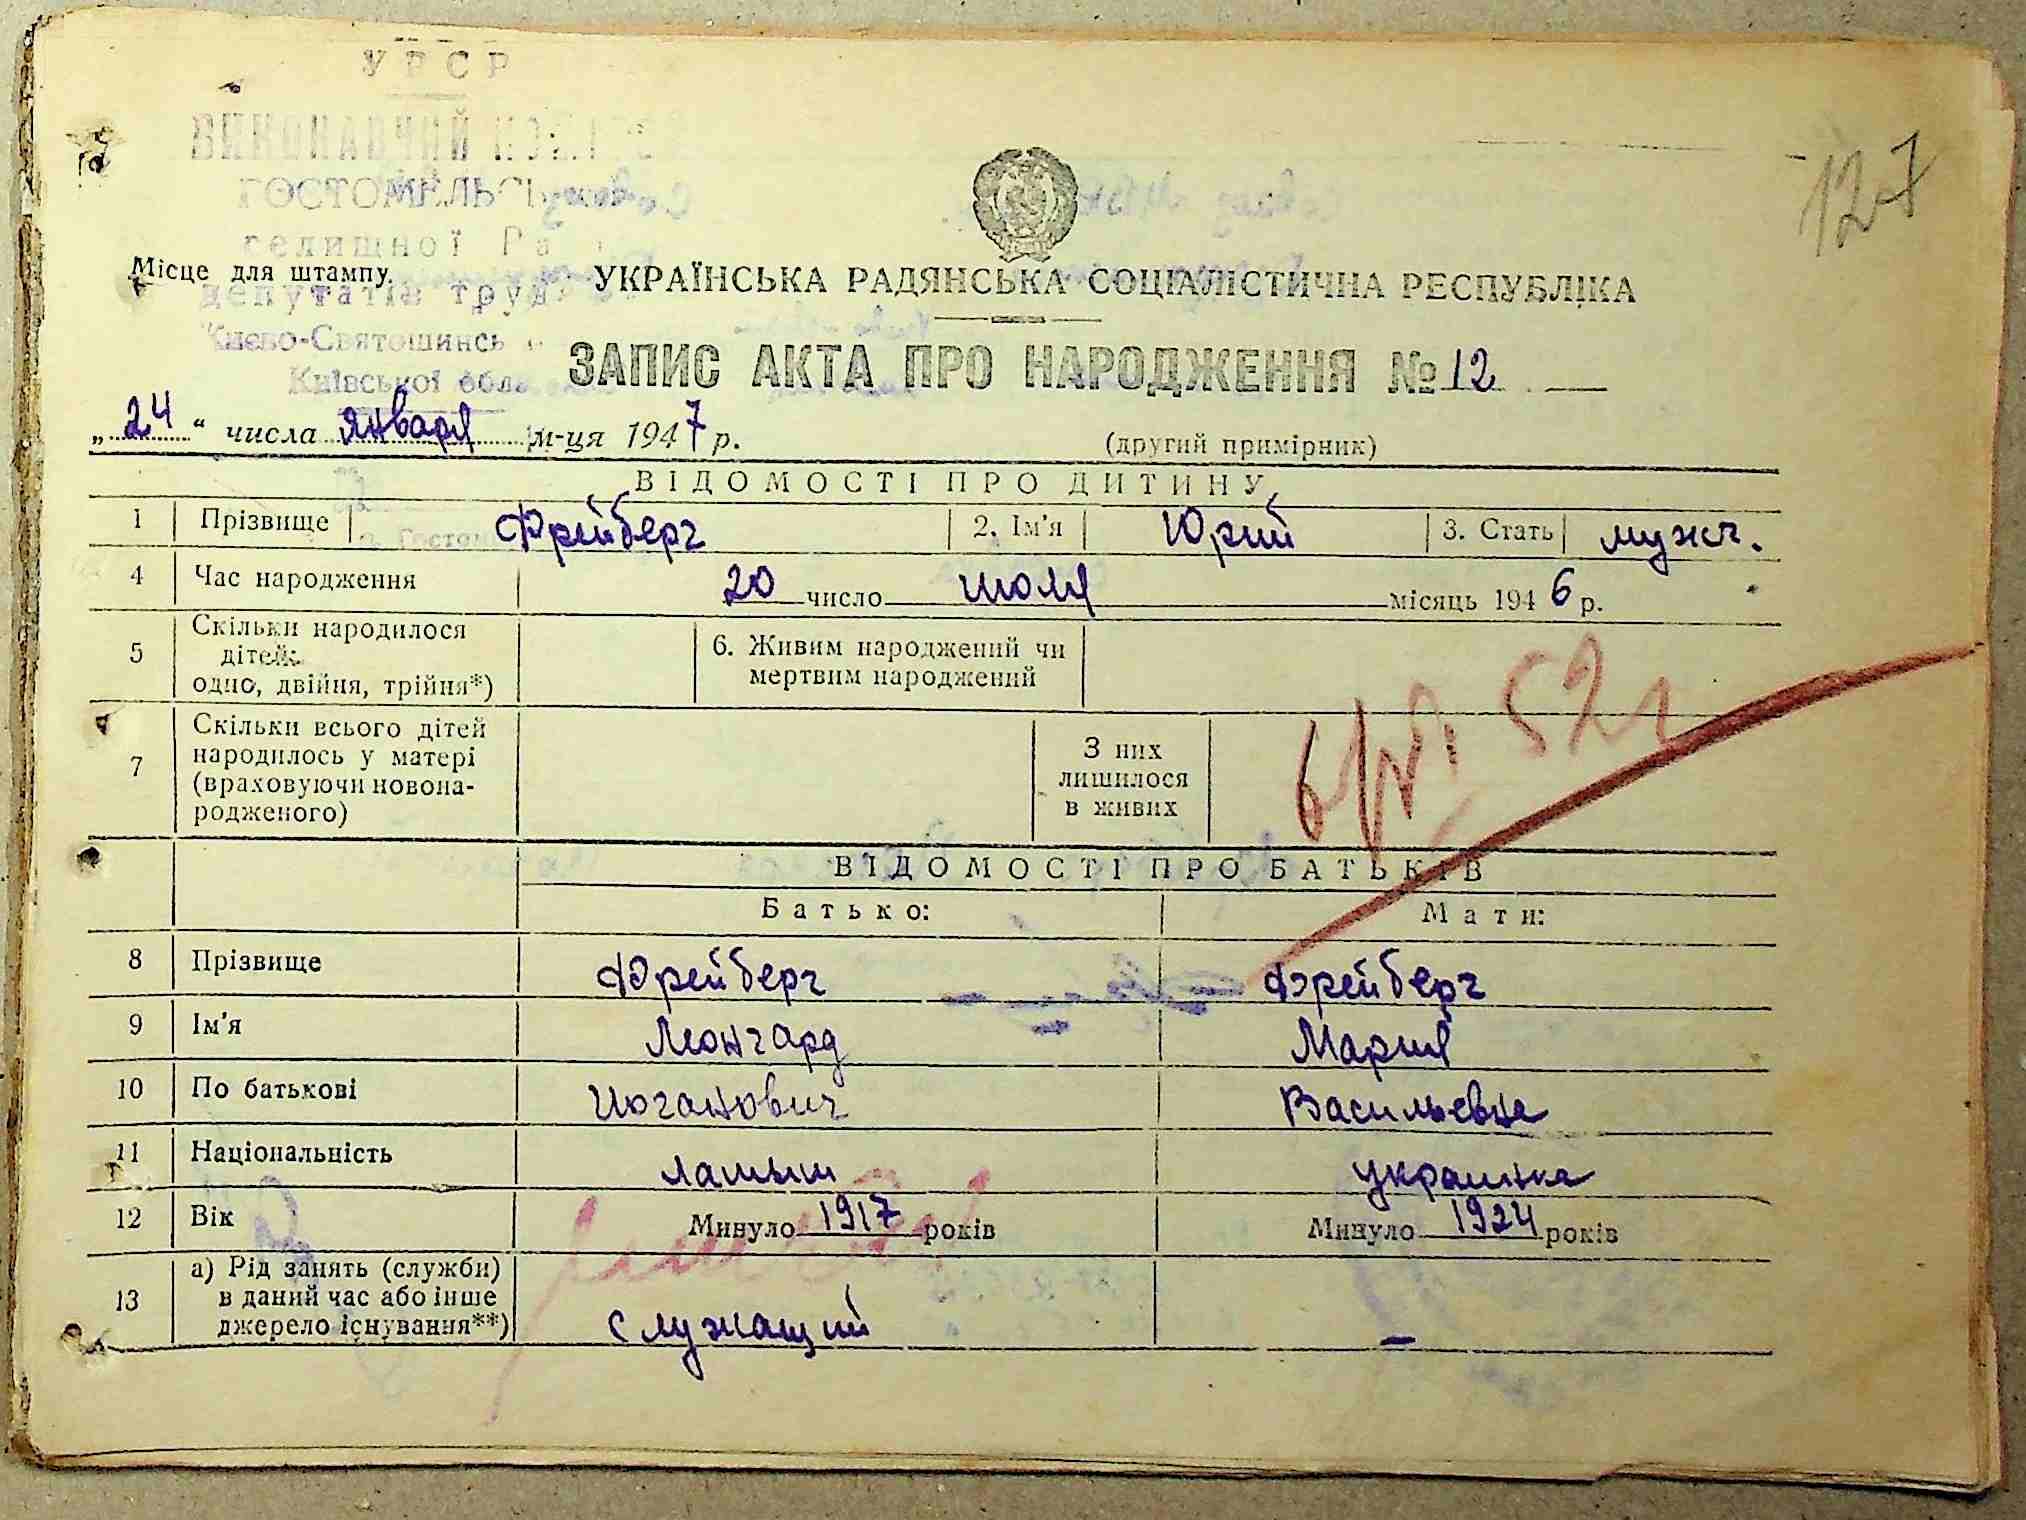 УРСР
ВИКОНАВЧИЙ
ГОСТОМЕЛЬСЬ
селищної Ра
депутатів труд
Києво-Святошинсь
Київської обла
127
Місце для штампу.
УКРАЇНСЬКА РАДЯНСЬКА СОЦІАЛІСТИЧНА РЕСПУБЛІКА
ЗАПИС АКТА ПРО НАРОДЖЕННЯ № 12
„24“ числа января м-ця 1947 р.
(другий примірник)
ВІДОМОСТІ ПРО ДИТИНУ
1 Прізвище Фрейберг 2. Ім'я Юрий 3. Стать мужч.
4 Час народження 20 число июля місяць 1946 р.
5 Скільки народилося дітей: одно, двійня, трійня*) 6. Живим народжений чи мертвим народжений
7 Скільки всього дітей народилось у матері (враховуючи новонародженого) З них лишилося в живих
52
ВІДОМОСТІ ПРО БАТЬКІВ
Батько: Мати:
8 Прізвище Фрейберг Фрейберг
9 Ім'я Леонгард Мария
10 По батькові Иоганович Васильевна
11 Національність латыш украинка
12 Вік Минуло 1917 років Минуло 1924 років
13 а) Рід занять (служби) в даний час або інше джерело існування**) служащий –